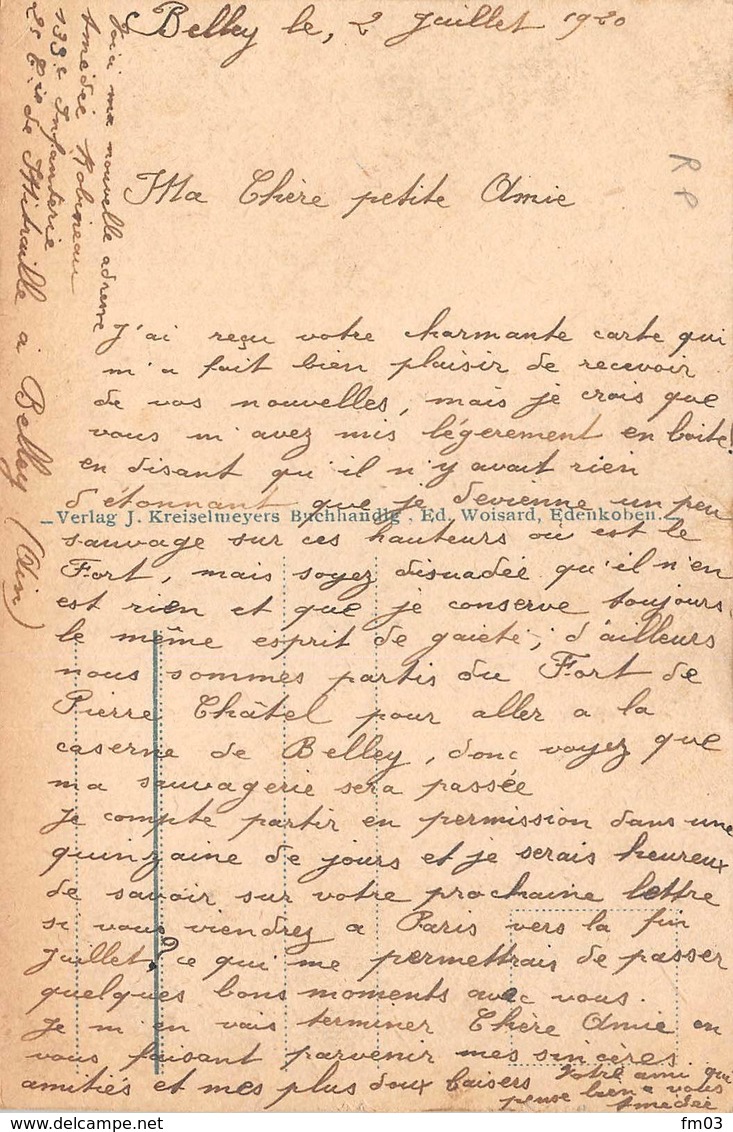 Belley le, 2 Juillet 1920
Ma Chère petite Amie
J'ai reçu votre charmante carte qui
m'a fait bien plaisir de recevoir
de vos nouvelles, mais je crois que
vous m'avez mis légèrement en boite!
en disant qu'il n'y avait rien
d'étonnant que je devienne un peu
Verlag J. Kreiselmeyers Buchhandlg. Ed. Woisard, Edenkoben.
sauvage sur ces hauteurs ou est le
Fort, mais soyez disuadée qu'il n'en
est rien et que je conserve toujours
le même esprit de gaieté, d'ailleurs
nous sommes partis du Fort de
Pierre Châtel pour aller a la
caserne de Belley, donc voyez que
ma sauvagerie sera passée
Je compte partir en permission dans une
quinzaine de jours et je serais heureux
de savoir sur votre prochaine lettre
si vous viendrez a Paris vers la fin
Juillet? ce qui me permettrais de passer
quelques bons moments avec vous.
Je m'en vais terminer Chère Amie en
vous faisant parvenir mes sincères
amitiés et mes plus doux baisers
Votre ami qui
pense bien a vous
Amédée
Voici ma nouvelle adresse
Amédée Robineau
133e Infanterie
2e Cie de Mitraille a Belley (Ain)
R P
fm03